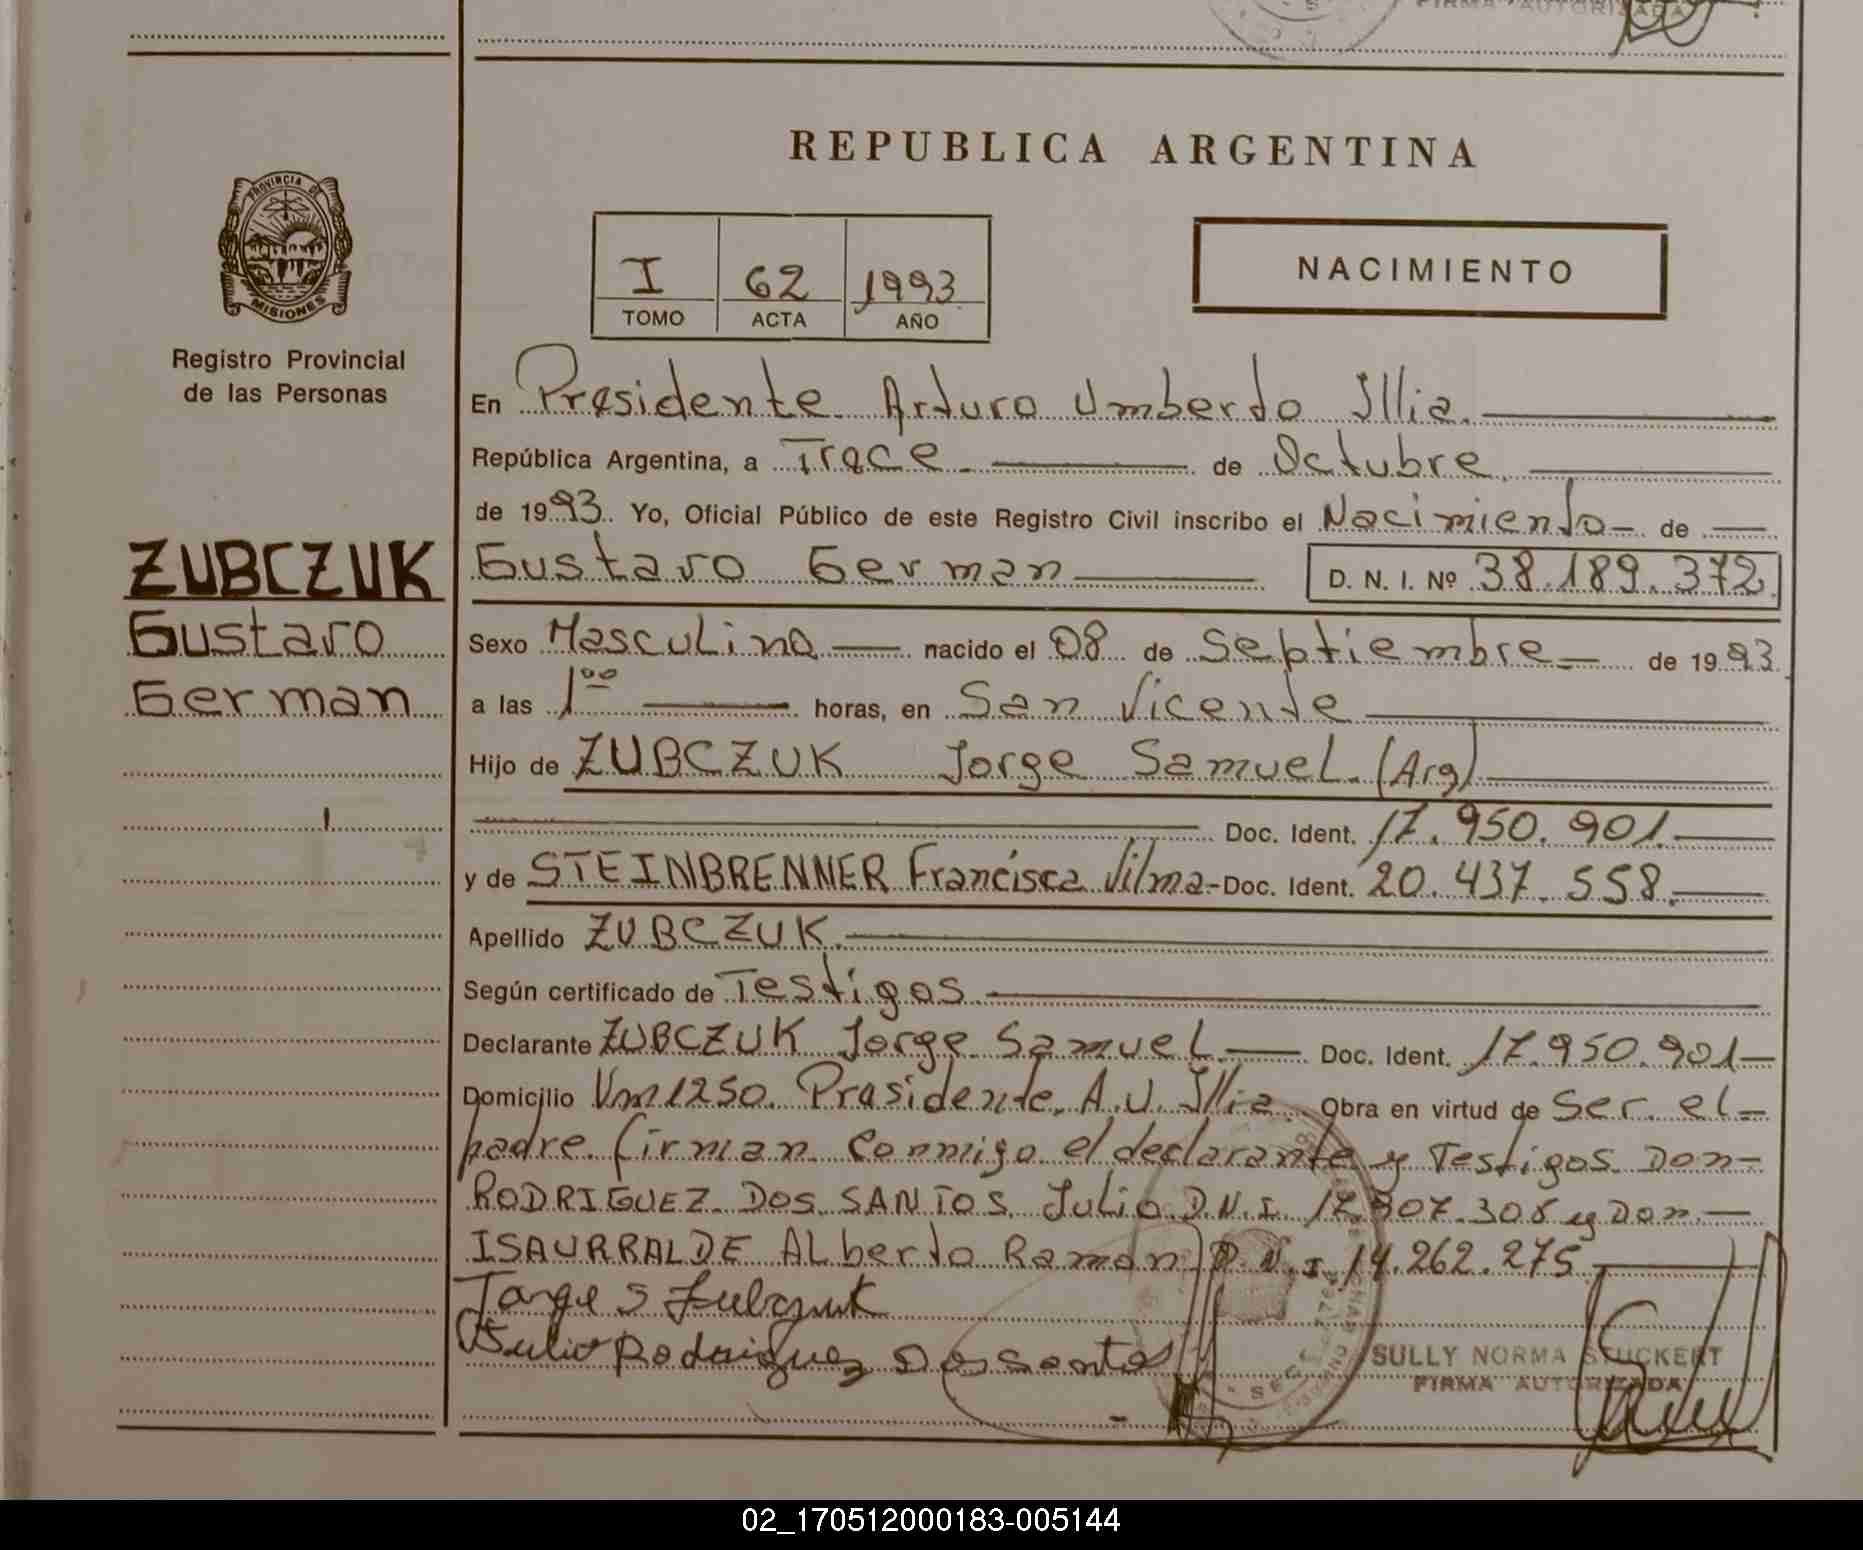 FIRMA AUTORIZADA
REPUBLICA ARGENTINA
PROVINCIA DE
MISIONES
Registro Provincial
de las Personas
I 62 1993
TOMO ACTA AÑO
NACIMIENTO
En Presidente Arturo Umberto Illia.
República Argentina, a Trece. de Octubre.
de 1993. Yo, Oficial Público de este Registro Civil inscribo el Nacimiento de
ZUBCZUK
Gustavo
German
Gustavo German D. N. I. Nº 38.189.372.
Sexo Masculino nacido el 08 de Septiembre de 1993
a las 1⁰⁰ horas, en San Vicente
Hijo de ZUBCZUK Jorge Samuel. (Arg)
Doc. Ident. 17.950.901.
y de STEINBRENNER Francisca Vilma - Doc. Ident. 20.437.558.
Apellido ZUBCZUK.
Según certificado de Testigos
Declarante ZUBCZUK Jorge Samuel. Doc. Ident. 17.950.901
Domicilio Vm 1250. Presidente. A.U. Illia Obra en virtud de Ser. el
padre. firman. Conmigo el declarante y Testigos Don
RODRIGUEZ DOS SANTOS Julio D.N.I. 17.307.308 y Don.
ISAURRALDE Alberto Ramon D.N.I. 14.262.275
Jorge S Zubczuk
Julio Rodriguez Dos santos
SULLY NORMA STUCKERT
FIRMA AUTORIZADA
02_170512000183-005144